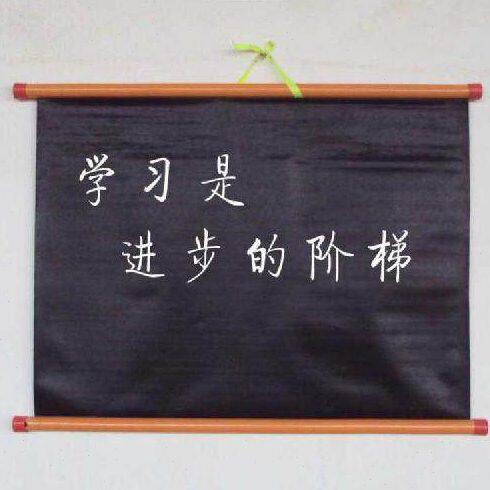 学习是
进步的阶梯